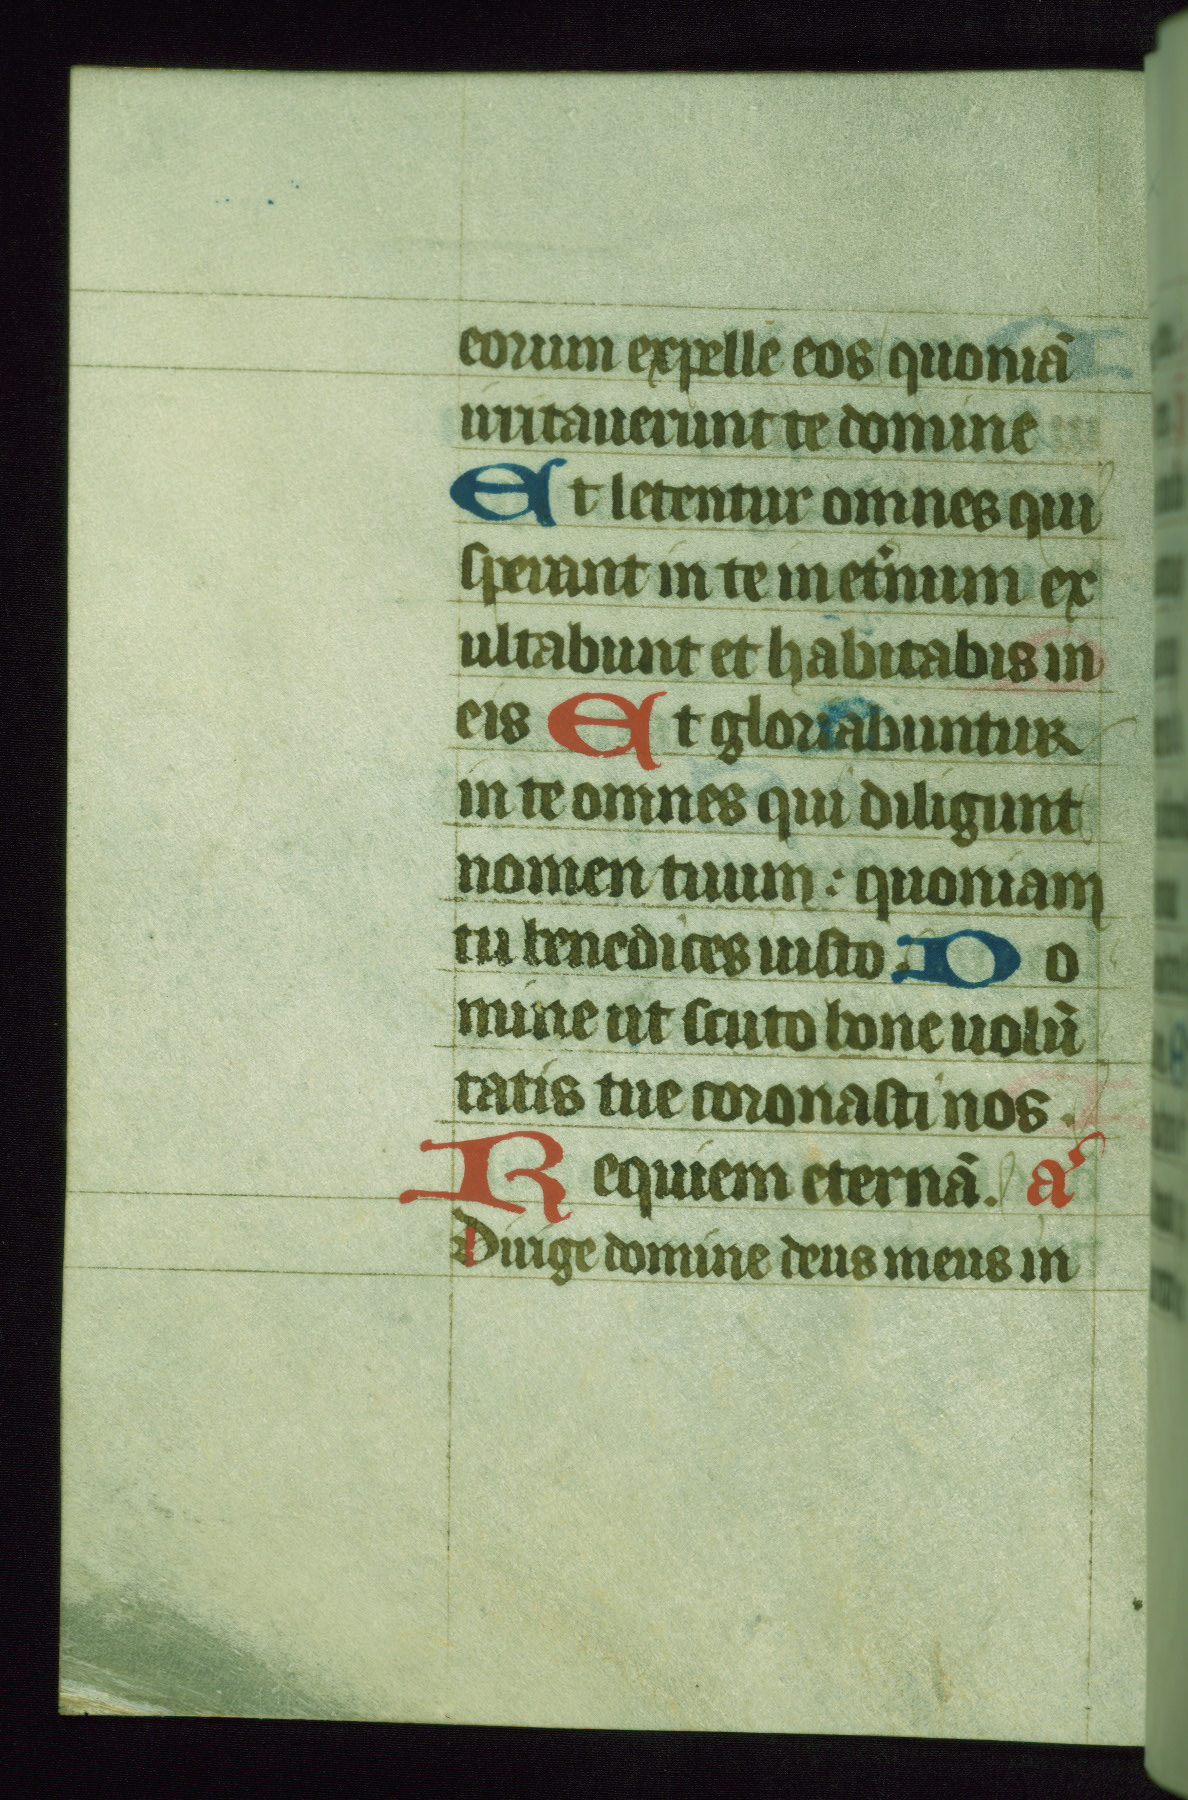 eorum expelle eos quoniā
irritauerunt te domine
Et letentur omnes qui
sperant in te in et̾num ex
ultabunt et habitabis in
eis Et gloriabuntur
in te omnes qui diligunt
nomen tuum : quoniam
tu benedices iusto . Do
mine ut scuto bone uolū
tatis tue coronasti nos .
Requiem eternā. a
Dirige domine deus meus in